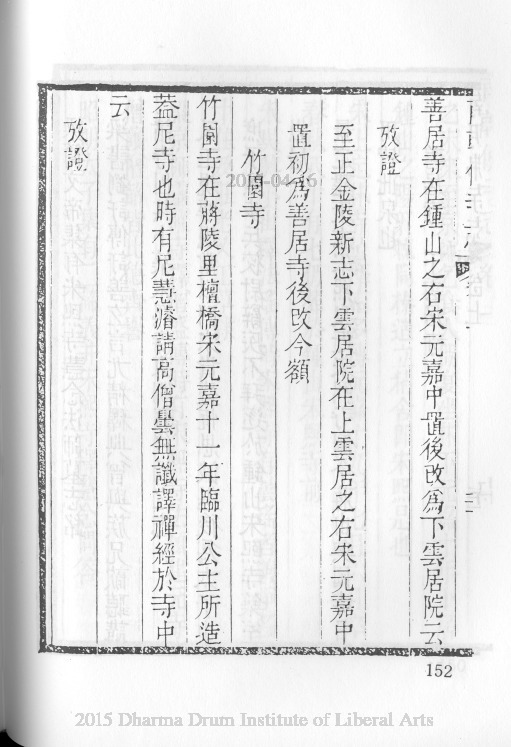 善居寺在鍾山之右宋元嘉中置後改爲下雲居院云
攷證
至正金陵新志下雲居院在上雲居之右宋元嘉中
置初爲善居寺後改今額
竹園寺
竹園寺在蔣陵里檀橋宋元嘉十一年臨川公主所造
葢尼寺也時有尼慧濬請高僧曇無讖譯禪經於寺中
云
攷證
152
2015 Dharma Drum Institute of Liberal Arts